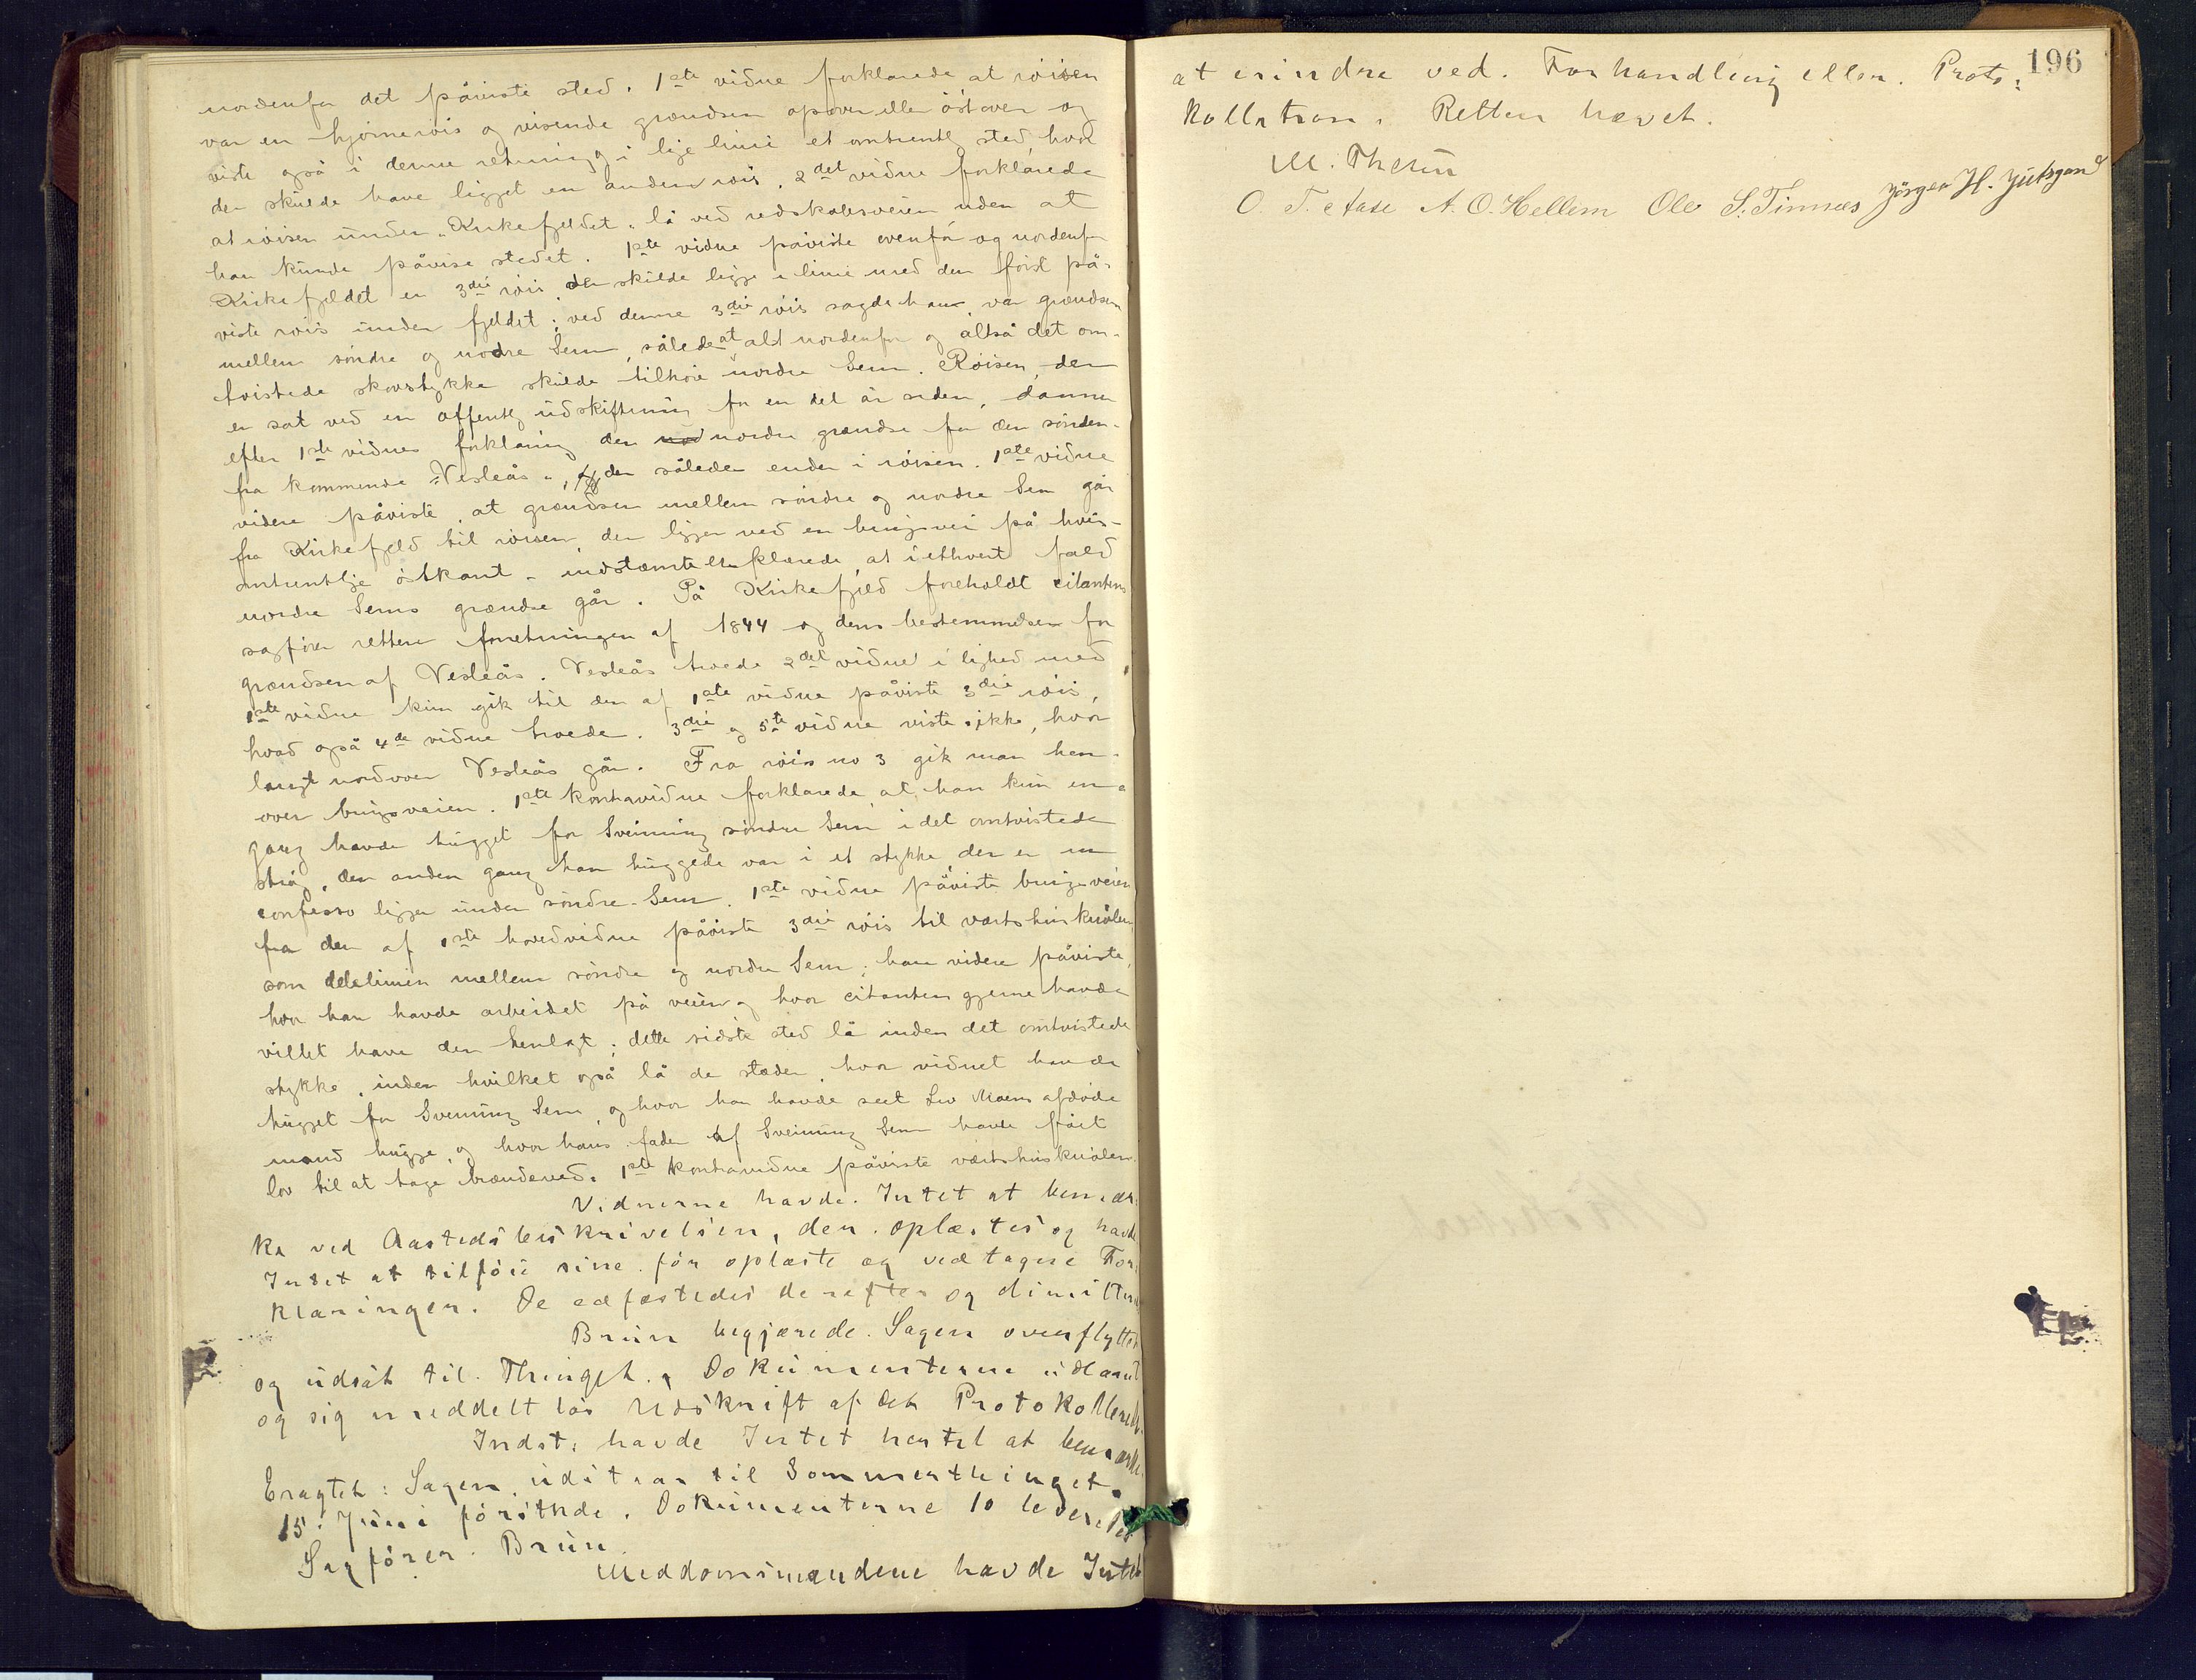 nordenfor det påviste sted. 1ste vidne forklarede at röisen
var en hjörneröis og visende grændsen opover eller östover og
viste også i denne retning og i lige linie et omtrentlg sted, hvor
der skulde have ligget en anden röis. 2det vidne forklarede
at röisen under "Kirkefjeldet" lå ved redskabsveien uden at
han kunde påvise stedet. 1ste vidne påviste ovenfor og nordenfor
Kirkefjeldet en 3die röis der skulde ligge i linie med den först på-
viste röis under fjeldet; ved denne 3die röis sagde han, var grændsen
mellem söndre og nordre Sem, således at alt nordenfor og altså det om-
tvistede skovstykke skulde tilhöre nordre Sem. Röisen, der
er sat ved en offentlg udskiftning for en del år siden, danner
efter 1ste vidnes forklaring den nordre grændse for den sönden-
fra kommende "Vesleås", der således ender i röisen. 1ste vidne
videre påviste, at grændsen mellem söndre og nordre Sem går
fra Kirkefjeld til röisen, der ligger ved en brugsvei på hvis
omtrentlige östkant - indstævnte erklærede, at i ethvert fald
nordre Sems grændse går. På Kirkefjeld foreholdt citantens
sagförer retten forretningen af 1844 og dens bestemmelser for
grændsen af Vesleås. Vesleås troede 2det vidne i lighed med
1ste vidne kun gik til den af 1ste vidne påviste 3die röis,
hvad også 4de vidne troede. 3die og 5te vidne viste ikke, hvor
langt nordover Vesleås går. Fra röis no 3 gik man hen-
over brugsveien. 1ste kontravidne forklarede, at han kun en
gang havde hugget for Sveinung söndre Sem i det omtvistede
strög, den anden gang han huggede var i et stykke, der er in
confesso ligger under söndre Sem. 1ste vidne påviste brugsveien
fra den af 1ste hovedvidne påviste 3die röis til værtshusknålen
som delelinien mellem söndre og nordre Sem; han videre påviste,
hvor han havde arbeidet på veien og hvor citanten gjerne havde
villet have den henlagt; dette sidste sted lå inden det omtvistede
stykke, inden hvilket også lå de stæder, hvor vidnet havde
hugget for Sveinung Sem, og hvor han havde seet Liv Moens afdöde
mand hugge, og hvor hans fader af Sveinung Sem havde fået
lov til at tage brændeved. 1ste kontravidne påviste værtshusknålen.
Vidnerne havde Intet at bemær-
ke ved Aastedsbeskrivelsen, der oplæstes og havde
Intet at tilföie sine för oplæste og vedtagne For-
klaringer. De edfæstedes derefter og dimitteredes
Brun begjærede Sagen overflyttet
og udsat til Thinget, Dokumenterne udlaant
og sig meddelt lös Udskrift af det Protokollerede.
Indst. havde Intet hertil at bemærke.
Eragtet: Sagen udstaar til Sommerthinget
15. Juni förstkde. Dokumenterne 10 leveredes
Sagförer Brun.
Meddomsmændene havde Intet
196
at erindre ved Forhandling eller Proto-
kollation. Retten hævet.
M. Thesen
O. T. Aase A. O. Hellem Ole S. Tinnees Jörgen H. Jutsgaard